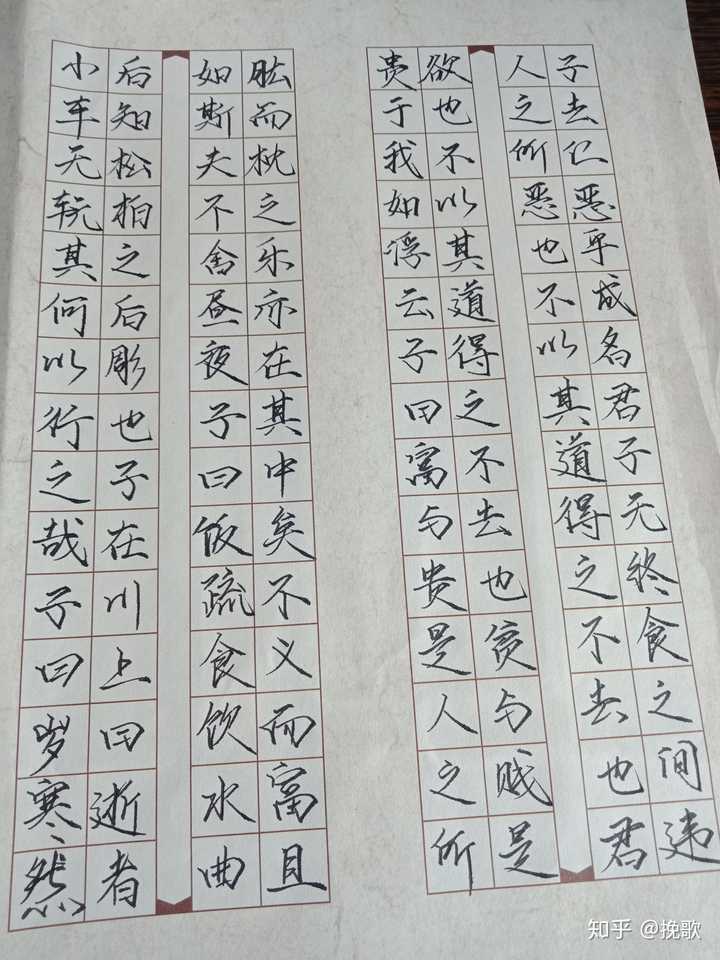 小车无𫐄其何以行之哉子曰岁寒然
后知松柏之后彫也子在川上曰逝者
如斯夫不舍昼夜子曰饭疏食饮水曲
肱而枕之乐亦在其中矣不义而富且
贵于我如浮云子曰富与贵是人之所
欲也不以其道得之不去也贫与贱是
人之所恶也不以其道得之不去也君
子去仁恶乎成名君子无终食之间违
知乎 @挽歌